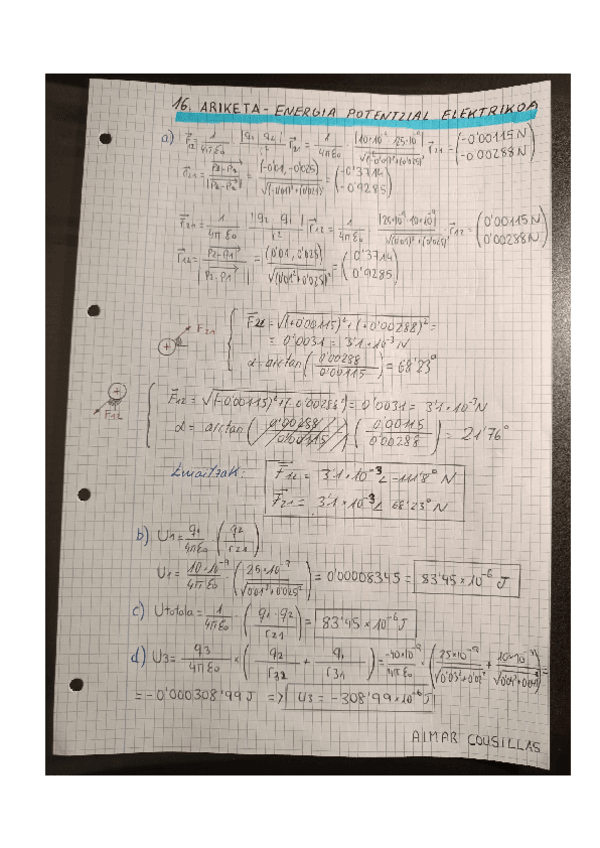 16. ARIKETA - ENERGIA POTENTZIAL ELEKTRIKOA
a) F⃗12 = 1/4πε0 · |q1·q2|/r² · r⃗21 = 1/4πε0 · |10×10⁻⁹ · 25×10⁻⁹|/√(0'01)²+(0'025)² · r⃗21 = (-0'00115N / -0'00288N)
r⃗21 = P2-P1/|P2-P1| = (-0'01, -0'025)/√(0'01)²+(0'025)² = (-0'3714 / -0'9285)
F⃗21 = 1/4πε0 · |q2·q1|/r² · r⃗12 = 1/4πε0 · |25×10⁻⁹ · 10×10⁻⁹|/√(0'01)²+(0'025)² · r⃗12 = (0'00115N / 0'00288N)
r⃗12 = P2-P1/|P2-P1| = (0'01, 0'025)/√(0'01)²+(0'025)² = (0'3714 / 0'9285)
F⃗21 = √(+0'00115)²+(+0'00288)² =
⊕ F21
= 0'0031 = 3'1×10⁻³ N
α = arctan(0'00288/0'00115) = 68'23°
⊕ F12
F⃗12 = √(-0'00115)²+(-0'00288)² = 0'0031 = 3'1×10⁻³ N
α = arctan (0'00115/0'00288) = 21'76°
Emaitzak: F⃗12 = 3'1×10⁻³ ∠ -111'8° N
F⃗21 = 3'1×10⁻³ ∠ 68'23° N
b) U1 = q1/4πε0 · (q2/r21)
U1 = 10×10⁻⁹/4πε0 · (25×10⁻⁹/√0'01²+0'025²) = 0'00008345 = 83'45×10⁻⁶ J
c) Utotala = 1/4πε0 · (q1·q2/r21) = 83'45×10⁻⁶ J
d) U3 = q3/4πε0 × (q2/r32 + q1/r31) =
= -0'00030899 J => U3 = -308'99×10⁻⁶ J
AIMAR COUSILLAS